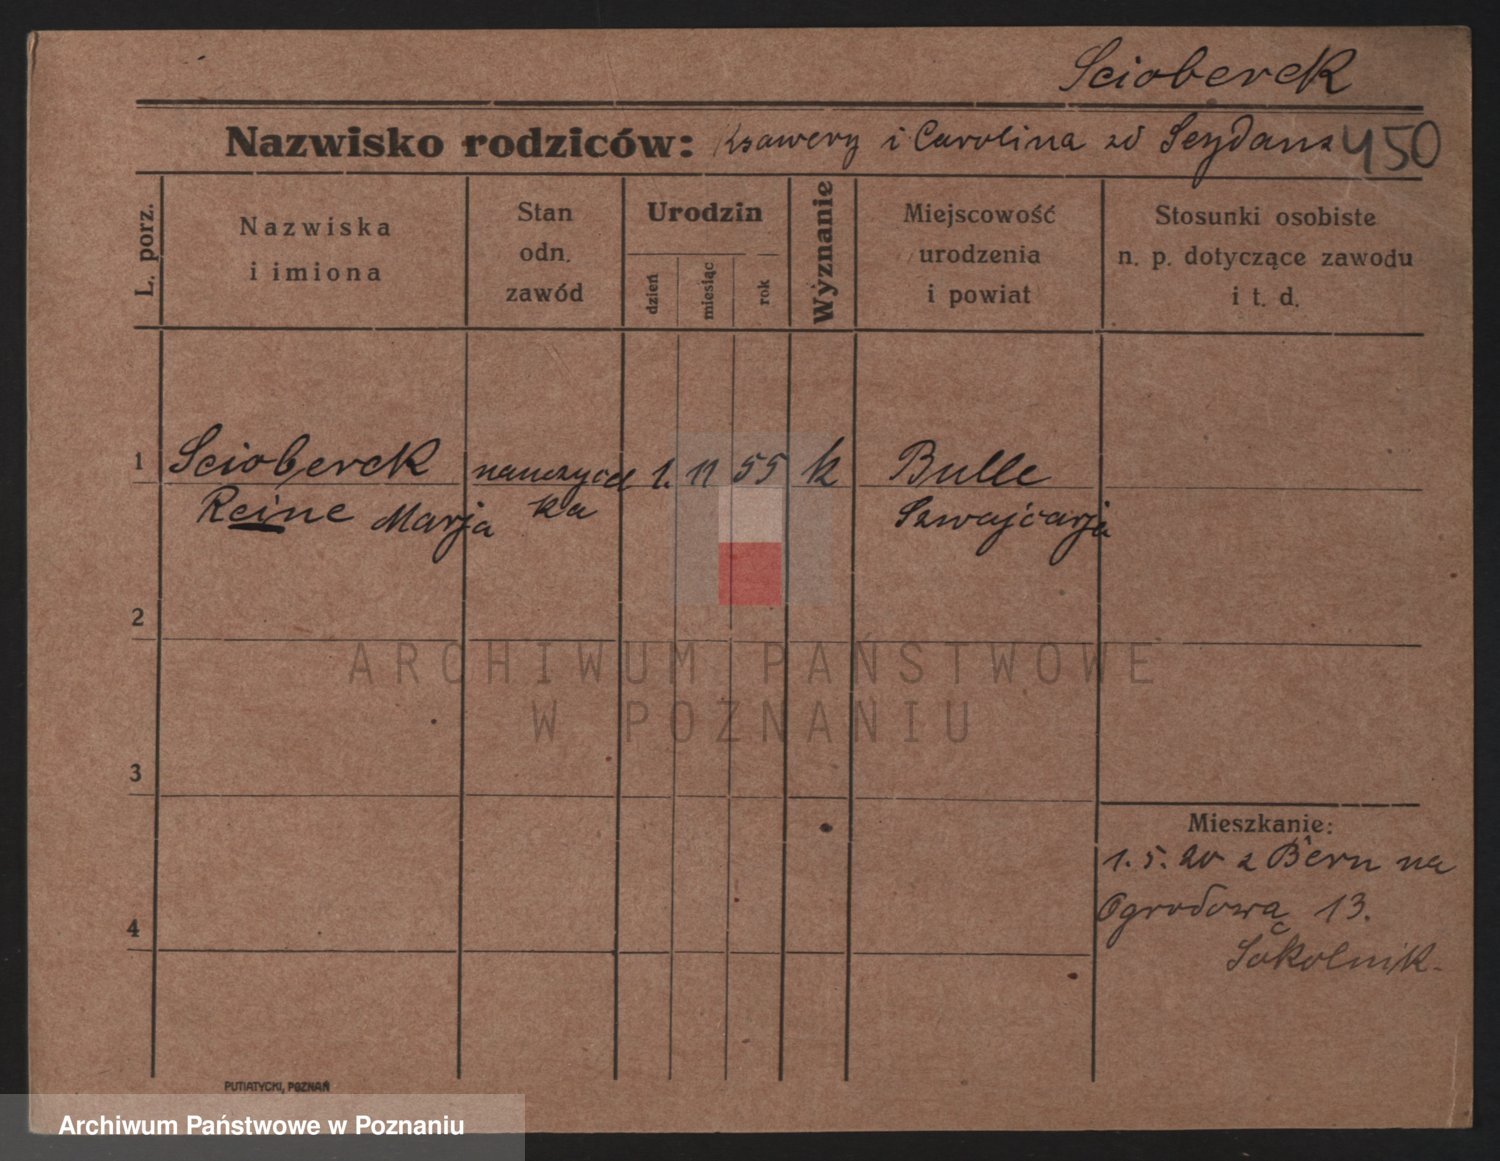 Scioberek
Nazwisko rodziców: Ksawery i Carolina zd Seydans 450
L. porz.
Nazwiska
i imiona
Stan
odn.
zawód
Urodzin
dzień
miesiąc
rok
Wyznanie
Miejscowość
urodzenia
i powiat
Stosunki osobiste
n. p. dotyczące zawodu
i t. d.
1 Scioberek nauczyciel 1. 11 55 k Bulle
Reine Marja ka Szwajcarja
2
ARCHIWUM PAŃSTWOWE
W POZNANIU
3
Mieszkanie:
1. 5. 20 z Bern na
Ogrodową 13.
4
Sokolnik.
PUTIATYCKI, POZNAŃ
Archiwum Państwowe w Poznaniu